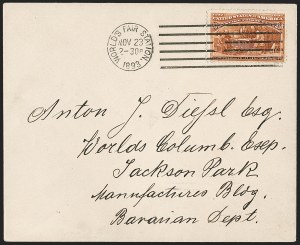 WORLD'S FAIR STATION,
NOV 23
2-30P
1893
UNITED STATES OF AMERICA
Anton J. Diessl Esq.
Worlds Columb. Exp.
Jackson Park
Manufactures Bldg.
Bavarian Dept.